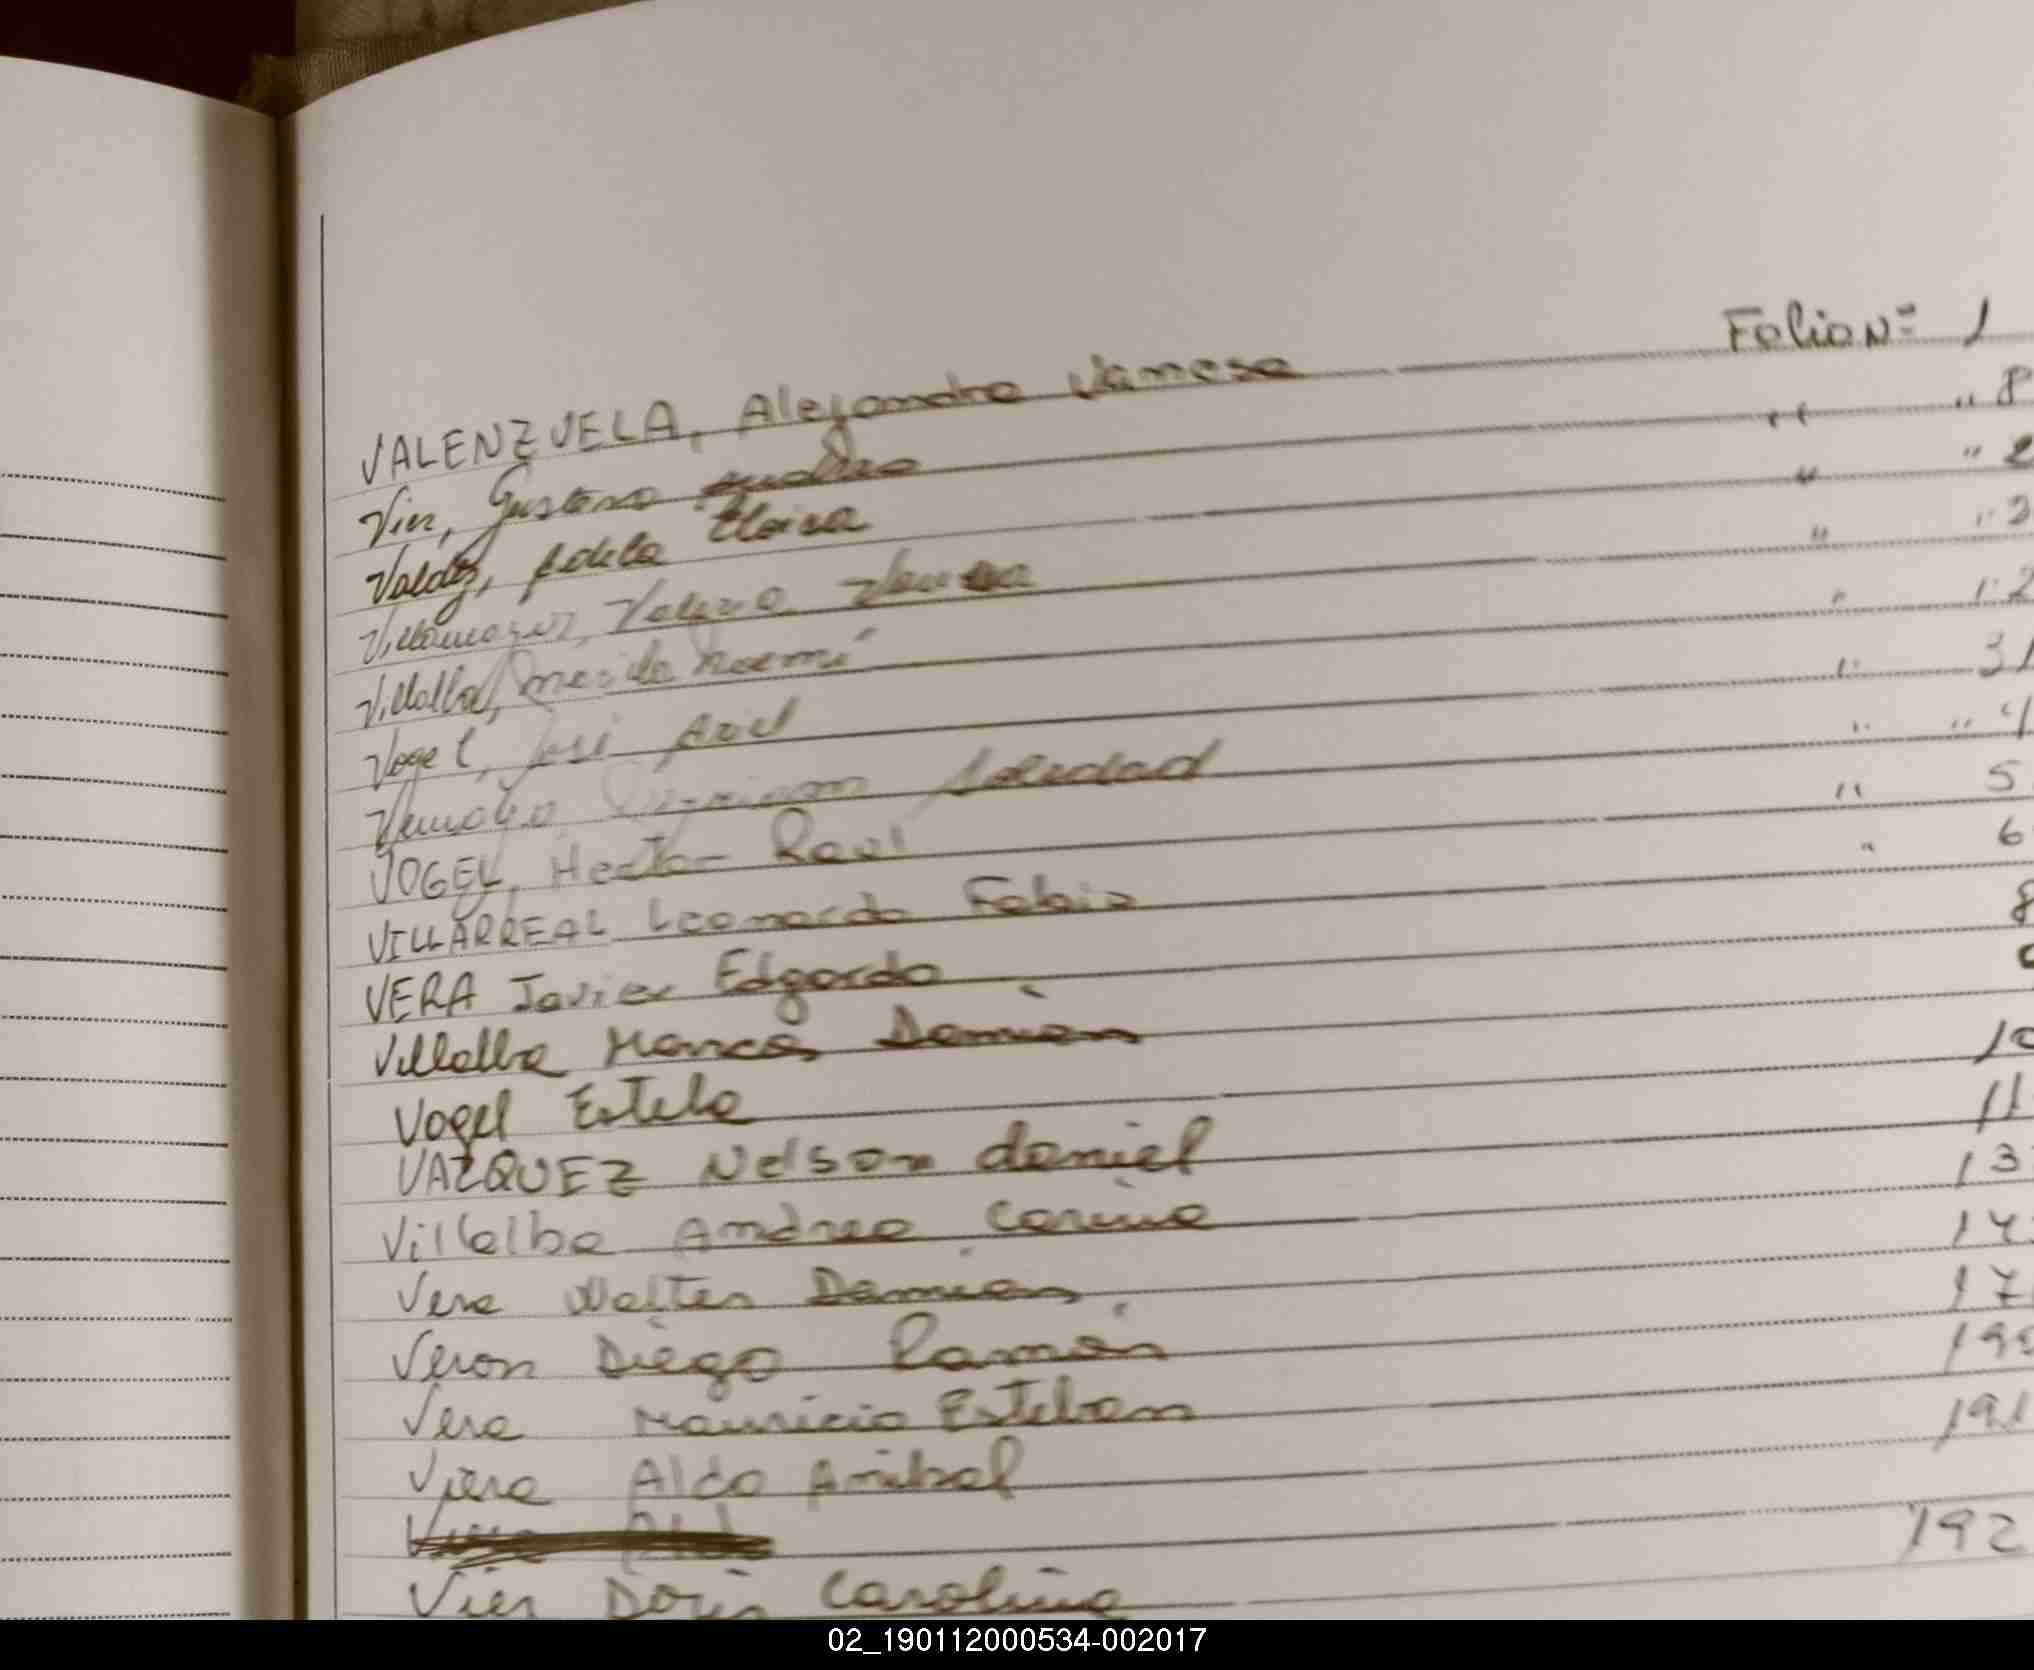 Folio Nº 1
VALENZUELA, Alejandra Vanesa
Vier, Gustavo " " 8
Valdez, Adela Eloisa " " 2
Villamayor, Valeria " "
Villalba, Noemí " 2
Vogel, José Ariel " 31
Soledad " " 4
VOGEL, Hector Raul " 5
VILLARREAL Leonardo Fabio " 6
VERA Javier Edgardo 8
Villalba Marcos Damián
Vogel Estela 10
VAZQUEZ Nelson daniel 11
Villalba Andrea Carina 13
Vera Walter Damián 14
Veron Diego Ramón 17
Vera Mauricio Esteban 190
Viera Aldo Anibal 191
Vier Doris Carolina 192
02_190112000534-002017